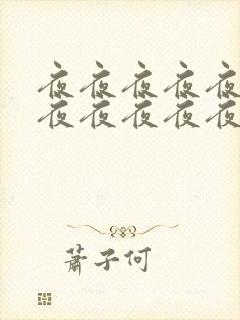 夜夜夜夜夜
夜夜夜夜夜
蕭子何